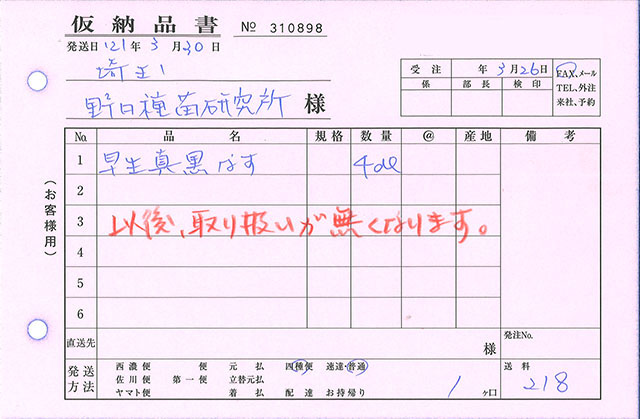 仮納品書 № 310898
発送日 '21年 3月30日
埼玉1
野口種苗研究所 様
受注 年3月26日 FAX、メール
係 部長 検印 TEL、外注
来社、予約
№ 品名 規格 数量 @ 産地 備考
1 早生真黒なす 4dl
2
3 以後、取り扱いが無くなります。
4
5
6
(お客様用)
直送先 様 発注No.
発送方法 西濃便 便 元払 四種便 速達・普通 送料
佐川便 第一便 立替元払 1ヶ口 218
ヤマト便 着払 配達 お持帰り